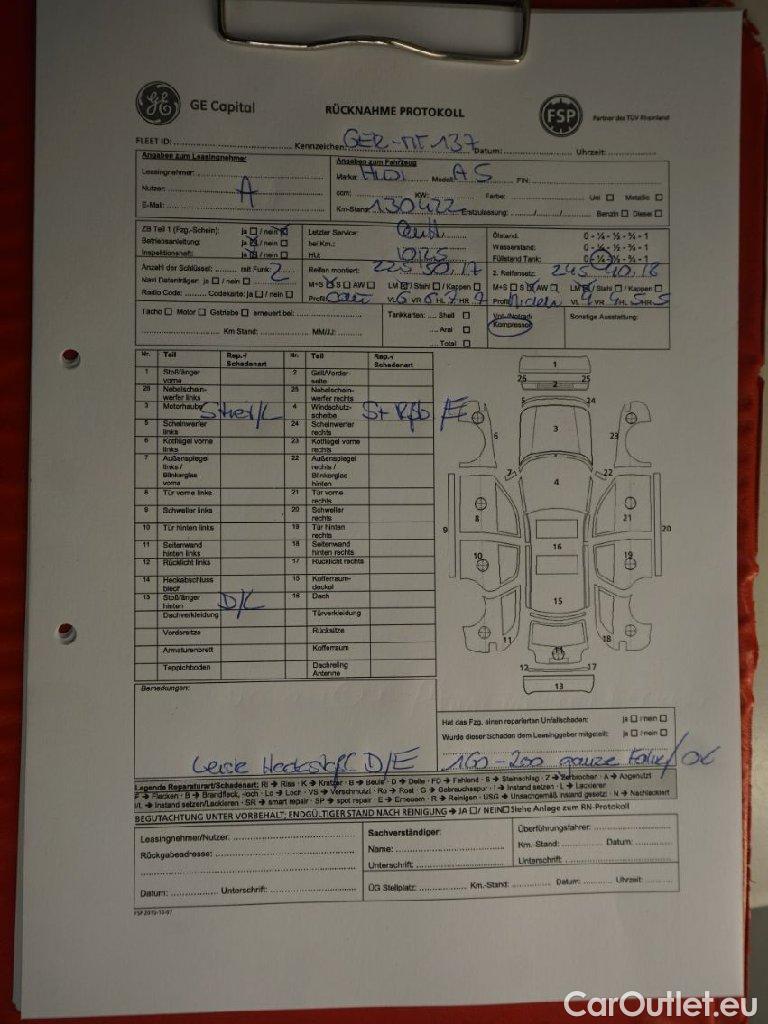 GE Capital
RÜCKNAHME PROTOKOLL
FSP
Partner des TÜV Rheinland
FLEET ID: Kennzeichen: GER-MT 137 Datum: Uhrzeit:
Angaben zum Leasingnehmer
Leasingnehmer:
Nutzer: A
E-Mail:
Angaben zum Fahrzeug
Marke: AUDI Modell: A5 FIN:
ccm: KW: Farbe: Uni ☐ Metallic ☐
Km-Stand: 130422 Erstzulassung: Benzin ☐ Diesel ☐
ZB Teil 1 (Fzg.-Schein): ja ☐ / nein ☒
Betriebsanleitung: ja ☒ / nein ☐
Inspektionsheft: ja ☒ / nein ☐
Letzter Service:
bei Km.:
HU: 10.25
Ölstand: 0 - ¼ - ½ - ¾ - 1
Wasserstand: 0 - ¼ - ½ - ¾ - 1
Füllstand Tank: 0 - ¼ - ½ - ¾ - 1
Anzahl der Schlüssel: mit Funk: 2
Navi Datenträger: ja ☐ / nein ☐
Radio Code: Codekarte: ja ☐ / nein ☐
Reifen montiert: 225.50.17
M+S ☒ S ☐ AW ☐ LM ☒ / Stahl ☐ / Kappen ☐
Profil: VL 6 VR 6 HL 7 HR 7
2. Reifensatz: 245 40.18
M+S ☐ S ☒ AW ☐ LM ☒ / Stahl ☐ / Kappen ☐
Profil: VL 4 VR 4 HL 5 HR 5
Tacho ☐ Motor ☐ Getriebe ☐ erneuert bei:
Km Stand: MM/JJ:
Tankkarten: Shell ☐
Aral ☐
Total ☐
Kompressor
Sonstige Ausstattung:
Nr. Teil Rep.-/ Schadenart Nr. Teil Rep.-/ Schadenart
1 Stoßfänger vorne 2 Grill/Vorderseite
26 Nebelscheinwerfer links 25 Nebelscheinwerfer rechts
3 Motorhaube 4 Windschutzscheibe /E
5 Scheinwerfer links 24 Scheinwerfer rechts
6 Kotflügel vorne links 23 Kotflügel vorne rechts
7 Außenspiegel links / Blinkerglas vorne 22 Außenspiegel rechts / Blinkerglas hinten
8 Tür vorne links 21 Tür vorne rechts
9 Schweller links 20 Schweller rechts
10 Tür hinten links 19 Tür hinten rechts
11 Seitenwand hinten links 18 Seitenwand hinten rechts
12 Rücklicht links 17 Rücklicht rechts
14 Heckabschlussblech 15 Kofferraumdeckel
13 Stoßfänger hinten D/L 16 Dach
Dachverkleidung Türverkleidung
Vordersitze Rücksitze
Armaturenbrett Kofferraum
Teppichboden Dachreling Antenne
1
25 25
2
5 24
3
6 23
7 22
4
8 21
9 20
16
10 19
15
11 18
14
12 17
13
Bemerkungen:
Hat das Fzg. einen reparierten Unfallschaden: ja ☐ / nein ☐
Wurde dieser Schaden dem Leasinggeber mitgeteilt: ja ☐ / nein ☐
D/E 160-200
Legende Reparaturart/Schadenart: Ri → Riss · K → Kratzer · B → Beule · D → Delle · FG → Fehlend · S → Steinschlag · Z → Zerbrochen · A → Abgenutzt
F → Flecken · B → Brandfleck, -loch · Lo → Loch · VS → Verschmutzt · Ro → Rost · G → Gebrauchsspur · I → Instand setzen · L → Lackieren
I/L → Instand setzen/Lackieren · SR → smart repair · SP → spot repair · E → Erneuern · R → Reinigen · USG → Unsachgemäß instand gesetzt · N → Nachlackiert
BEGUTACHTUNG UNTER VORBEHALT; ENDGÜLTIGER STAND NACH REINIGUNG → JA ☐ / NEIN ☐ Siehe Anlage zum RN-Protokoll
Leasingnehmer/Nutzer:
Rückgabeadresse:
Datum: Unterschrift:
Sachverständiger:
Name:
Unterschrift:
Überführungsfahrer:
Km. Stand: Datum:
Unterschrift:
ÜG Stellplatz: Km.-Stand: Datum: Uhrzeit:
CarOutlet.eu